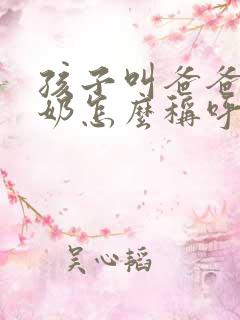 孩子叫爸爸
奶怎麼稱呼
吴心韬